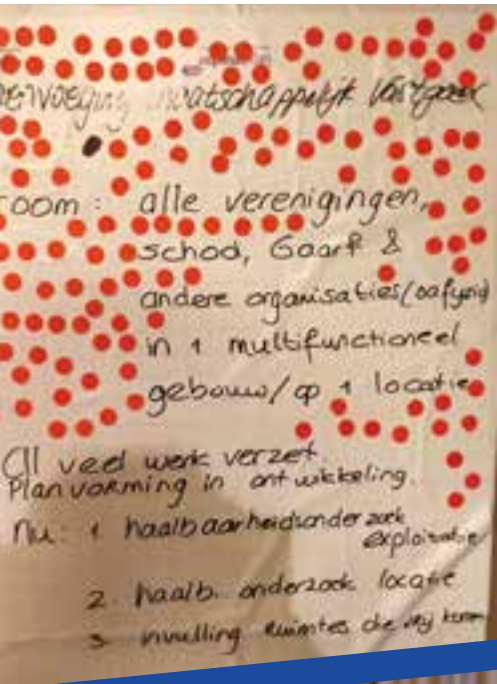 maatschappelijk vastgoed
room: alle verenigingen,
school, Gaarf &
andere organisaties/
in 1 multifunctioneel
gebouw/op 1 locatie
All veel werk verzet.
Planvorming in ontwikkeling.
nu: 1 haalbaarheidsonderzoek
exploitatie
2. haalb. onderzoek locatie
3 invulling ruimtes die vrij komen